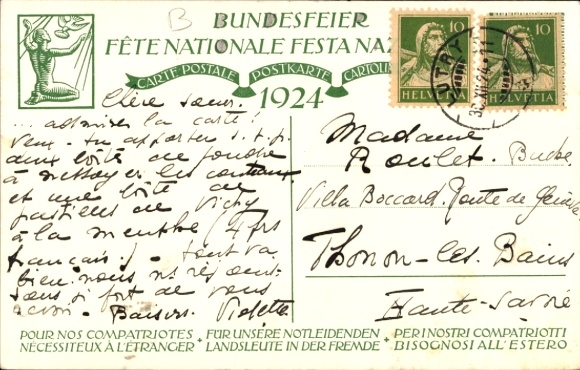 B
BUNDESFEIER
FÊTE NATIONALE FESTA NAZ
CARTE POSTALE POSTKARTE CARTOLI
1924
10 HELVETIA
10 HELVETIA
LUTRY
Chère sœur.
... admirez la carte!
Veux-tu apporter s.t.p.
deux boîtes de poudre
à nettoyer les couteaux
et une boîte de
pastilles de Vichy
à la menthe (4 frs
français.) - tout va
bien. nous ns réjouis-
sons si fort de vous
revoir. - Baisers. Violette
Madame
Roulet-
Villa Boccard. Route de Genève
Thonon-les-Bains
Haute-Savoie
POUR NOS COMPATRIOTES + FÜR UNSERE NOTLEIDENDEN + PER I NOSTRI COMPATRIOTTI
NÉCESSITEUX À L'ÉTRANGER LANDSLEUTE IN DER FREMDE BISOGNOSI ALL'ESTERO